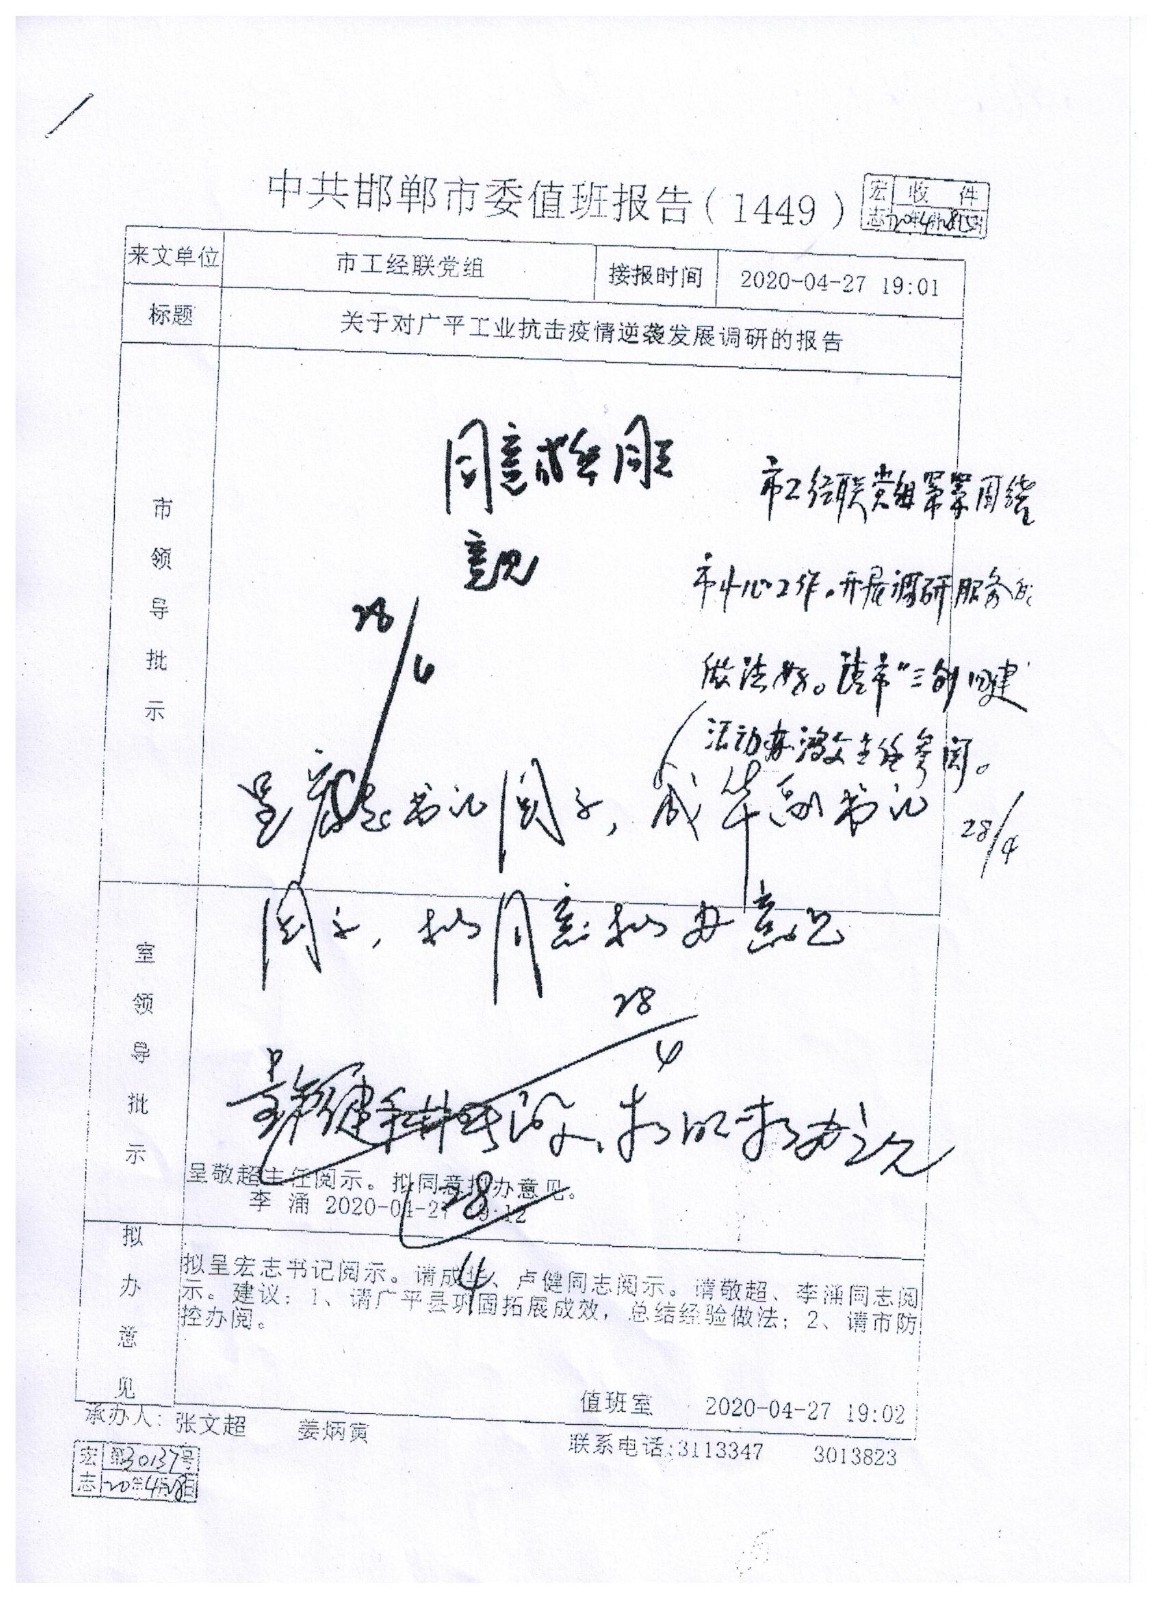 中共邯郸市委值班报告(1449)
宏志 收件
20年4月28日
来文单位 市工经联党组 接报时间 2020-04-27 19:01
标题 关于对广平工业抗击疫情逆袭发展调研的报告
市领导批示
同意成华同志
意见
28/4
市工经联党组紧紧围绕
市中心工作,开展调研服务的
做法好。请市"三创四建"
活动办鸿文主任参阅。
28/4
呈宏志书记阅示,成华副书记
阅示,拟同意拟办意见
28/4
室领导批示
呈卢健秘书长阅,拟同意拟办意见
28/4
呈敬超主任阅示。拟同意拟办意见。
李涌 2020-04-27 19:12
拟办意见
拟呈宏志书记阅示。请成华、卢健同志阅示。请敬超、李涌同志阅
示。建议:1、请广平县巩固拓展成效,总结经验做法;2、请市防
控办阅。
值班室 2020-04-27 19:02
承办人:张文超 姜炳寅 联系电话:3113347 3013823
宏志 第30137号
20年4月28日